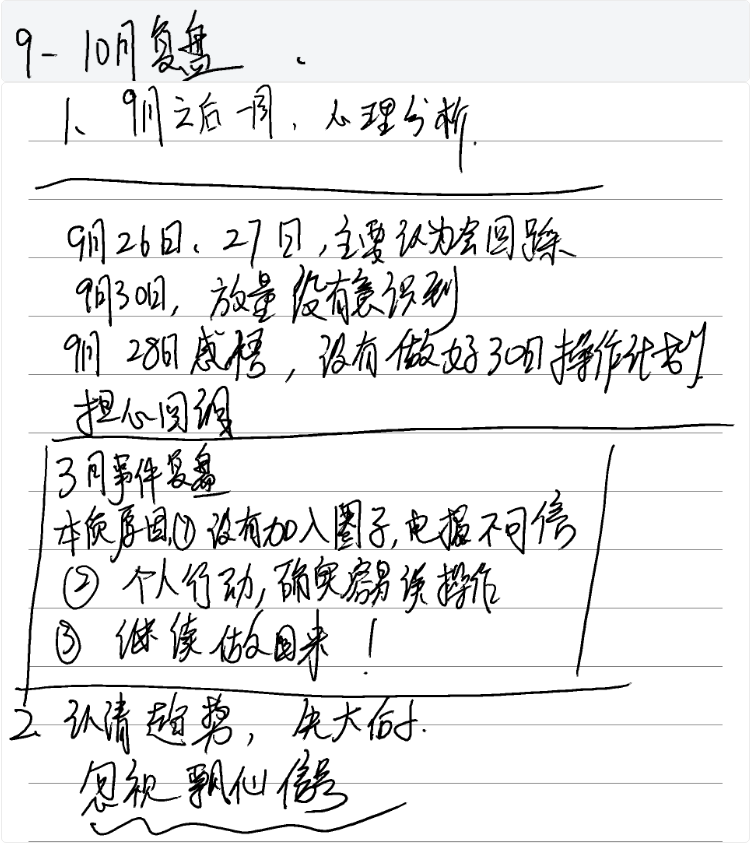 9-10月复盘.
1、9月之后一周、心理分析.
9月26日、27日,主要认为会回踩
9月30日,放量没有意识到
9月28日感悟,没有做好30日操作计划
担心回调
3月事件复盘
本质原因,① 没有加入圈子,电报不可信
② 个人行动,确实容易误操作
③ 继续做回来!
2、认清趋势,
忽视飘仙信号